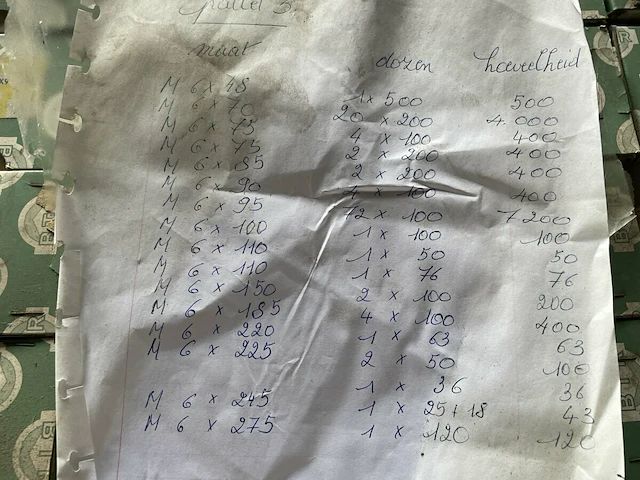 pallet 3.
maat dozen hoeveelheid
M 6 x 48 1 x 500 500
M 6 x 70 20 x 200 4.000
M 6 x 75 4 x 100 400
M 6 x 75 2 x 200 400
M 6 x 85 2 x 200 400
M 6 x 90 4 x 100 400
M 6 x 95 72 x 100 7200
M 6 x 100 1 x 100 100
M 6 x 110 1 x 50 50
M 6 x 110 1 x 76 76
M 6 x 150 2 x 100 200
M 6 x 185 4 x 100 400
M 6 x 220 1 x 63 63
M 6 x 225 2 x 50 100
1 x 36 36
M 6 x 245 1 x 25+18 43
M 6 x 275 1 x 120 120